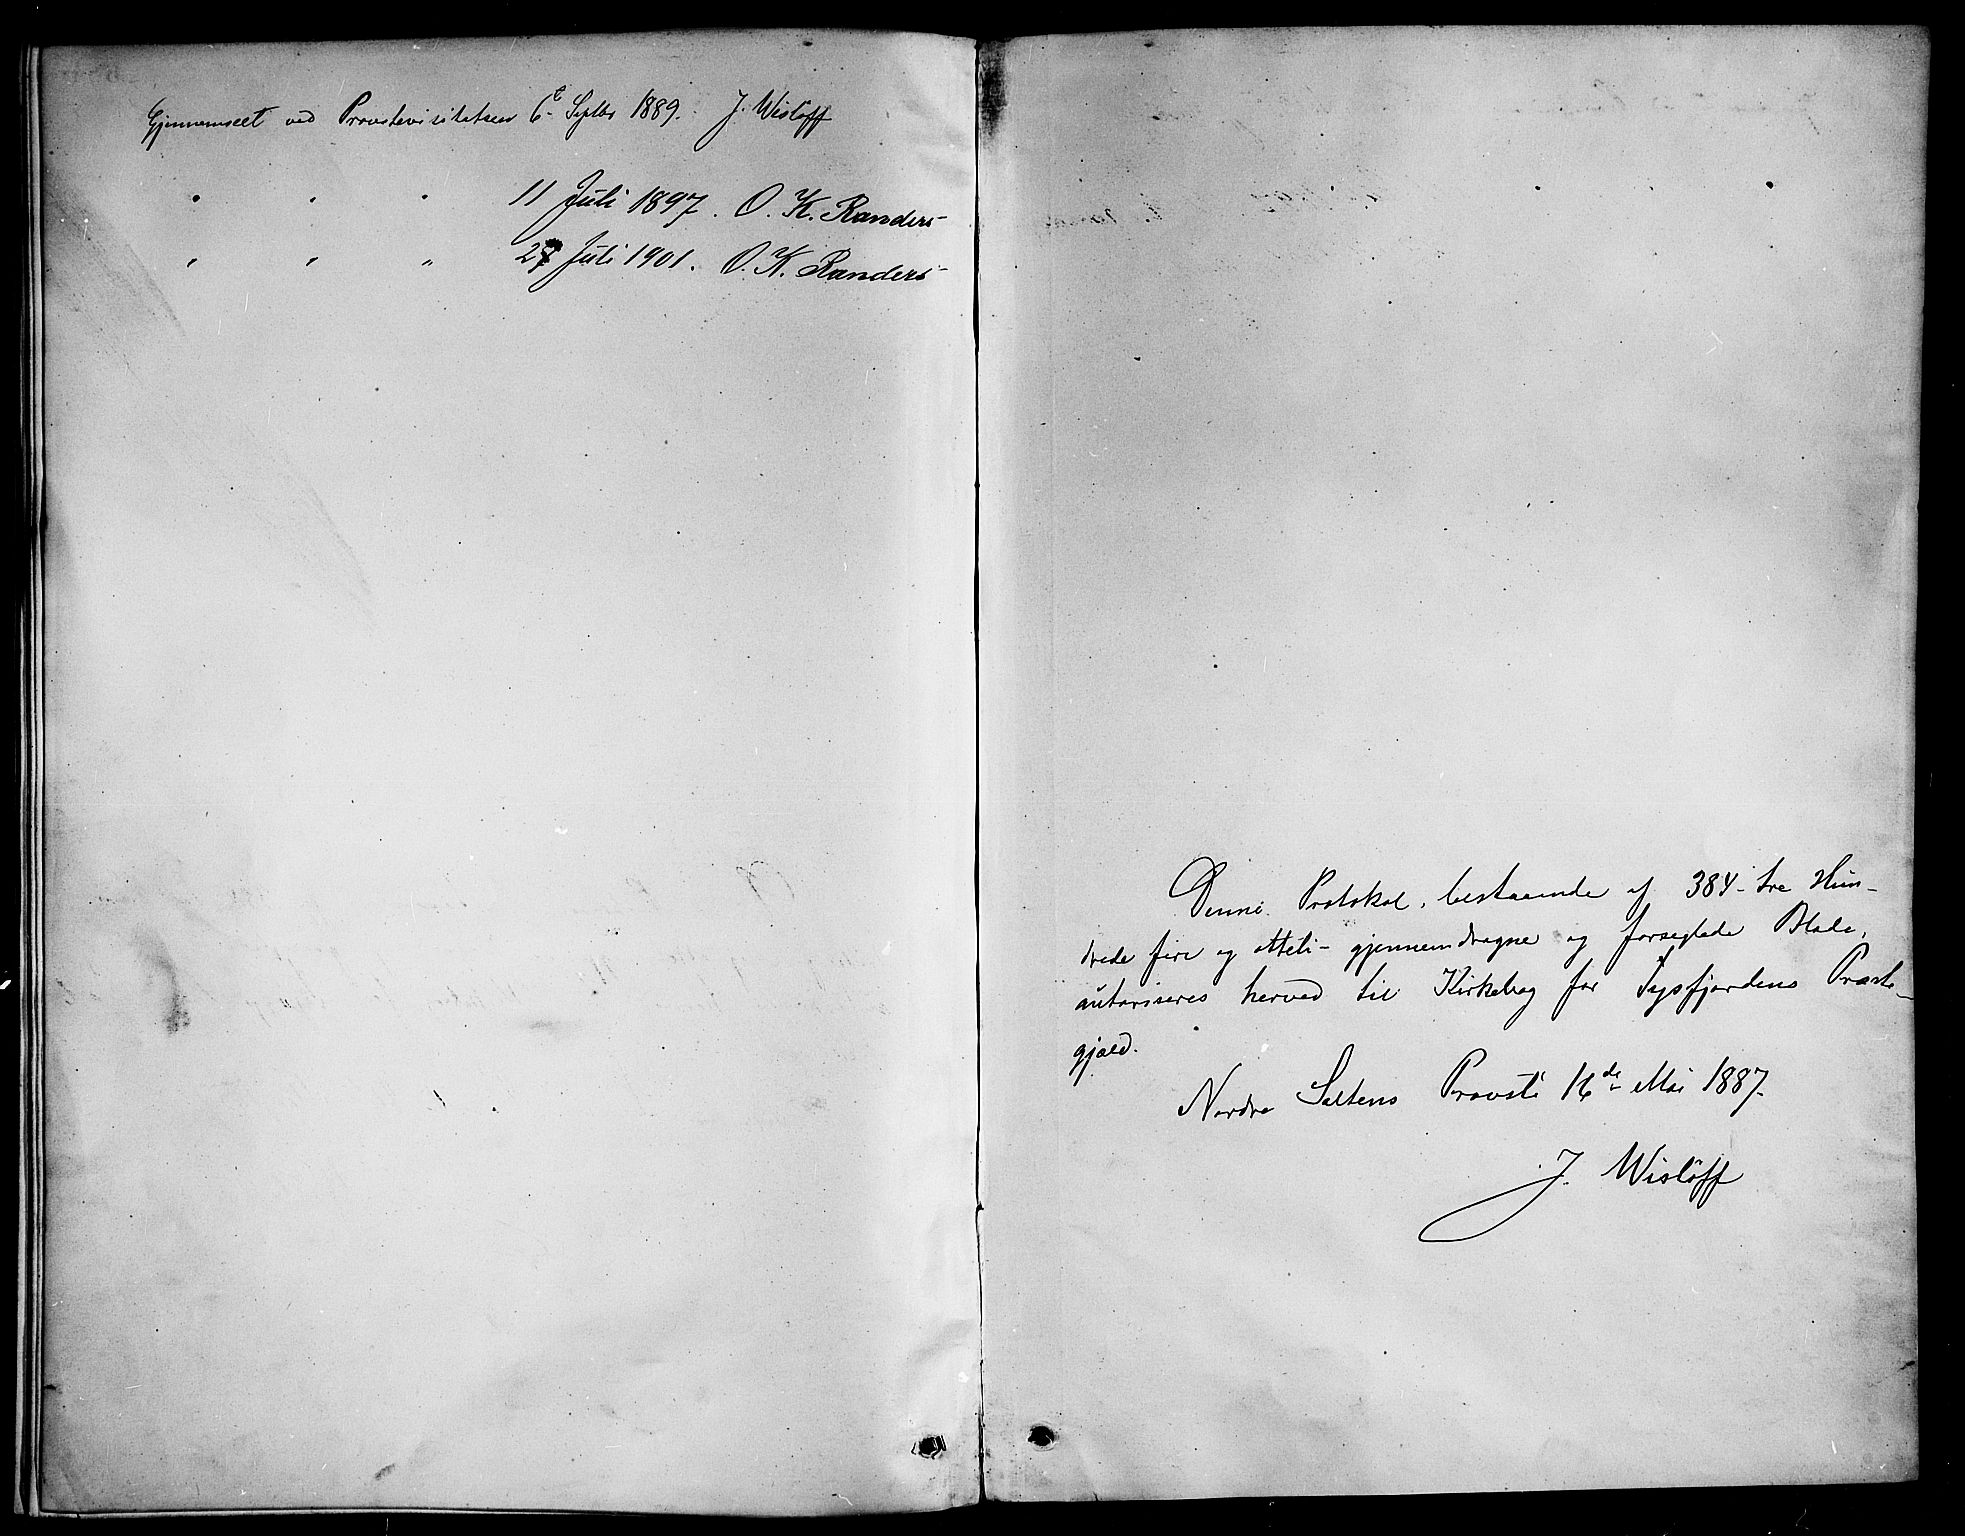 Gjennemseet ved Provstevisitatsen 6te Septbr 1889. J. Wisløff
" " " 11 Juli 1897. O. K. Randers
" " " Juli 1901. O. K. Randers
Denne Protokol, bestaaende af 384 - tre Hun-
drede fire og otteti - gjennemdragne og forseglede Blade,
autoriseres herved til Kirkebog for Tysfjordens Præste-
gjæld.
Nordre Saltens Provsti 16de Mai 1887.
J. Wisløff